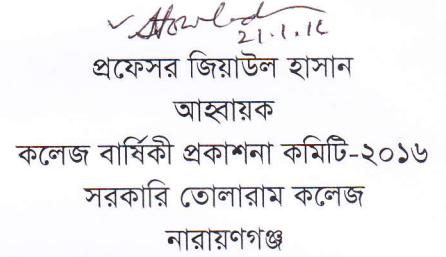 21.1.16
প্রফেসর জিয়াউল হাসান
আহ্বায়ক
কলেজ বার্ষিকী প্রকাশনা কমিটি-২০১৬
সরকারি তোলারাম কলেজ
নারায়ণগঞ্জ